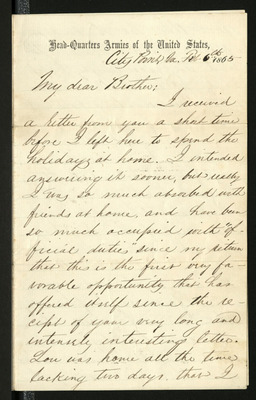 Head-Quarters Armies of the United States,
City Point, Va. Feb. 6th 1865
My dear Brother;
I received
a letter from you a short time
before I left here to spend the
holidays at home. I intended
answering it sooner, but really
I was so much absorbed with
friends at home, and have been
so much occupied with "of-
ficial duties" since my return
that this is the first very fa-
vorable opportunity that has
offered itself since the re-
ceipt of your very long and
intensely interesting letter.
was home all the time
lacking two days, that I